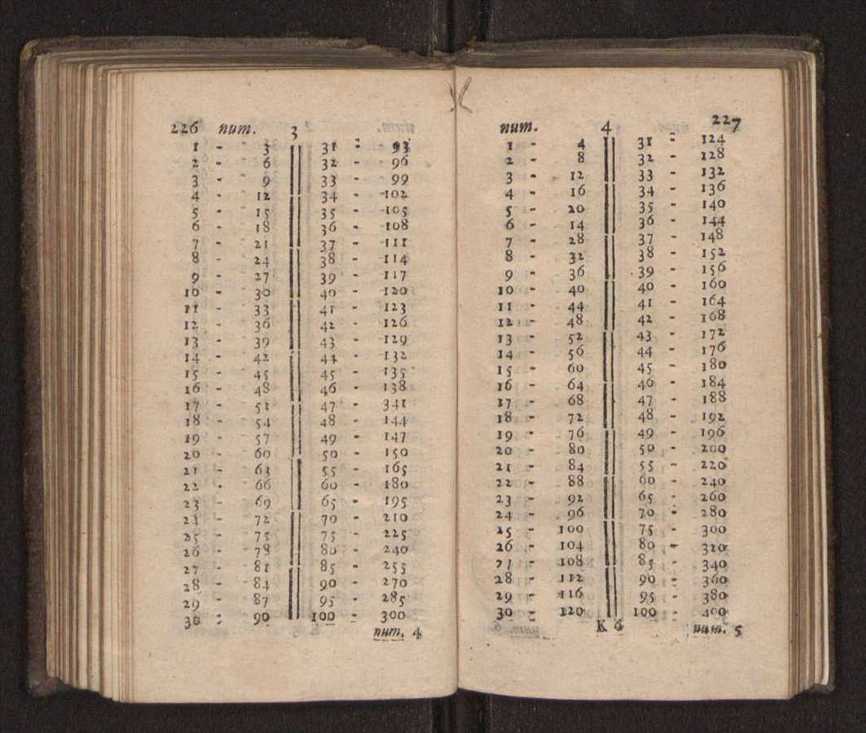 226 num. 3
1 - 3 31 - 93
2 - 6 32 - 96
3 - 9 33 - 99
4 - 12 34 - 102
5 - 15 35 - 105
6 - 18 36 - 108
7 - 21 37 - 111
8 - 24 38 - 114
9 - 27 39 - 117
10 - 30 40 - 120
11 - 33 41 - 123
12 - 36 42 - 126
13 - 39 43 - 129
14 - 42 44 - 132
15 - 45 45 - 135
16 - 48 46 - 138
17 - 51 47 - 341
18 - 54 48 - 144
19 - 57 49 - 147
20 - 60 50 - 150
21 - 63 55 - 165
22 - 66 60 - 180
23 - 69 65 - 195
24 - 72 70 - 210
25 - 75 75 - 225
26 - 78 80 - 240
27 - 81 85 - 255
28 - 84 90 - 270
29 - 87 95 - 285
30 - 90 100 - 300
num. 4
num. 4 227
1 - 4 31 - 124
2 - 8 32 - 128
3 - 12 33 - 132
4 - 16 34 - 136
5 - 20 35 - 140
6 - 14 36 - 144
7 - 28 37 - 148
8 - 32 38 - 152
9 - 36 39 - 156
10 - 40 40 - 160
11 - 44 41 - 164
12 - 48 42 - 168
13 - 52 43 - 172
14 - 56 44 - 176
15 - 60 45 - 180
16 - 64 46 - 184
17 - 68 47 - 188
18 - 72 48 - 192
19 - 76 49 - 196
20 - 80 50 - 200
21 - 84 55 - 220
22 - 88 60 - 240
23 - 92 65 - 260
24 - 96 70 - 280
25 - 100 75 - 300
26 - 104 80 - 320
27 - 108 85 - 340
28 - 112 90 - 360
29 - 116 95 - 380
30 - 120 100 - 400
K 6 num. 5